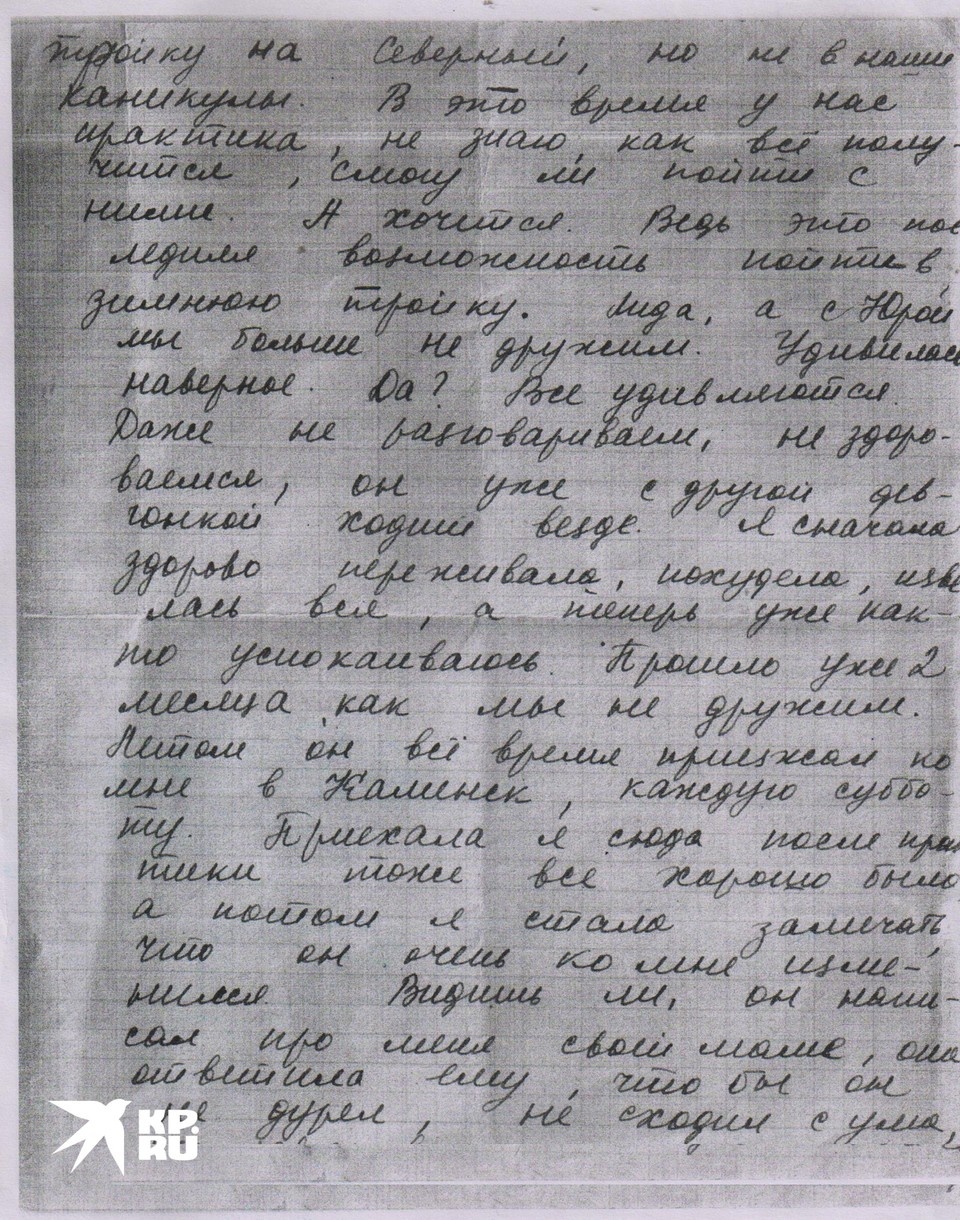 тройку на Северный, но не в наши
каникулы. В это время у нас
практика, не знаю, как всё полу-
чится, смогу ли пойти с
ними. А хочится. Ведь это пос
ледняя возможность пойти в
зимнюю тройку. Лида, а с Юрой
мы больше не дружим. Удивилась
наверное. Да? Все удивляются.
Даже не разговариваем, не здоро-
ваемся, он уже с другой дев-
чонкой ходит везде. Я сначала
здорово переживала, похудела, изве
лась вся, а теперь уже как-
то успокаиваюсь. Прошло уже 2
месяца как мы не дружим.
Летом он всё время приезжал ко
мне в Каменск, каждую суббо-
ту. Приехала я сюда после прак
тики тоже все хорошо было,
а потом я стала замечать,
что он очень ко мне изме-
нился. Видишь ли, он напи-
сал про меня своей маме, она
ответила ему, что бы он
не дурел, не сходил с ума,
KP.
RU